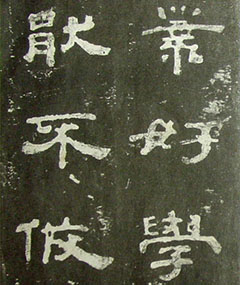 業好學
猒不攸